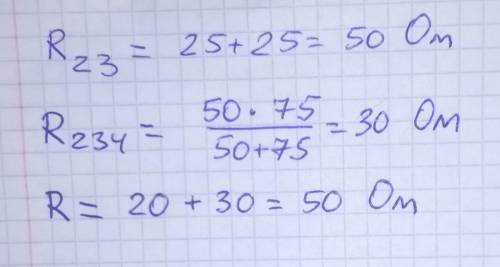 R₂₃ = 25+25 = 50 Ом
R₂₃₄ = 50·75/50+75 = 30 Ом
R = 20 + 30 = 50 Ом